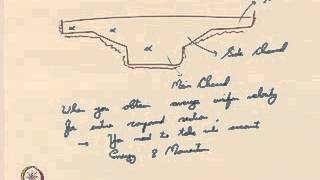 α α α
Side Channel
Main Channel
When you obtain average uniform velocity
for entire compound section
→ You need to take into account
Energy & Momentum